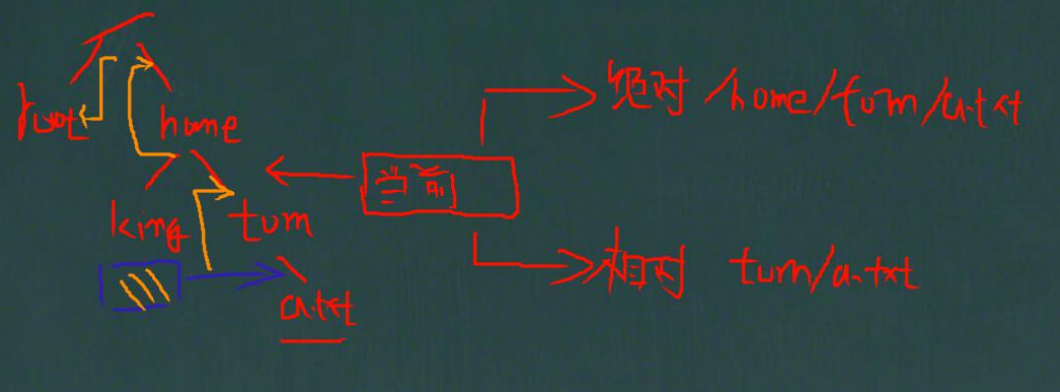 /
root
home
king
tom
a.txt
当前
绝对 /home/tom/a.txt
相对 tom/a.txt